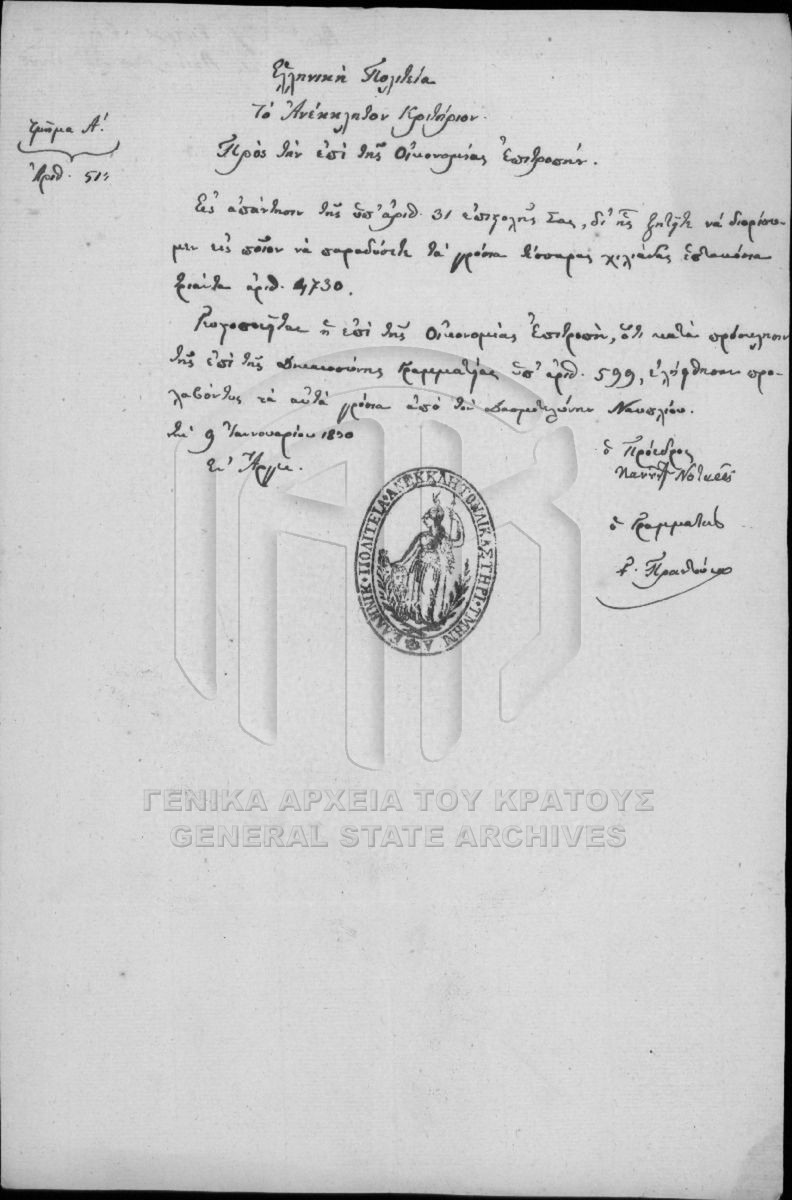 Ἑλληνικὴ Πολιτεία
Τὸ Ἀνέκκλητον Κριτήριον.
Τμῆμα Α΄.
Πρὸς τὴν ἐπὶ τῆς Οἰκονομίας Ἐπιτροπήν.
Ἀριθ. 51:
Εἰς ἀπάντησιν τῆς ὑπ' ἀριθ. 31 ἐπιστολῆς Σας, δι' ἧς ζητεῖτε νὰ διορίσω-
μεν εἰς ποῖον νὰ παραδώσετε τὰ γρόσια τέσσαρας χιλιάδας ἑπτακόσια
τριάντα ἀριθ. 4730.
Εἰδοποιεῖται ἡ ἐπὶ τῆς Οἰκονομίας Ἐπιτροπή, ὅτι κατὰ πρόσκλησιν
τῆς ἐπὶ τῆς Δικαιοσύνης Γραμματείας ὑπ' ἀριθ. 599, ἐλήφθησαν προ-
λαβόντως τὰ αὐτὰ γρόσια ἀπὸ τὸν Δασμοτελώνην Ναυπλίου.
τῇ 9 Ἰαννουαρίου 1830
Ἐν Ἄργει.
ὁ Πρόεδρος
ὁ Γραμματεὺς
ΕΛΛΗΝΙΚ · ΠΟΛΙΤΕΙΑ · ΑΝΕΚΚΛΗΤΟΝ ΔΙΚΑΣΤΗΡΙ · ΤΜΗΝ Α
ΓΕΝΙΚΑ ΑΡΧΕΙΑ ΤΟΥ ΚΡΑΤΟΥΣ
GENERAL STATE ARCHIVES